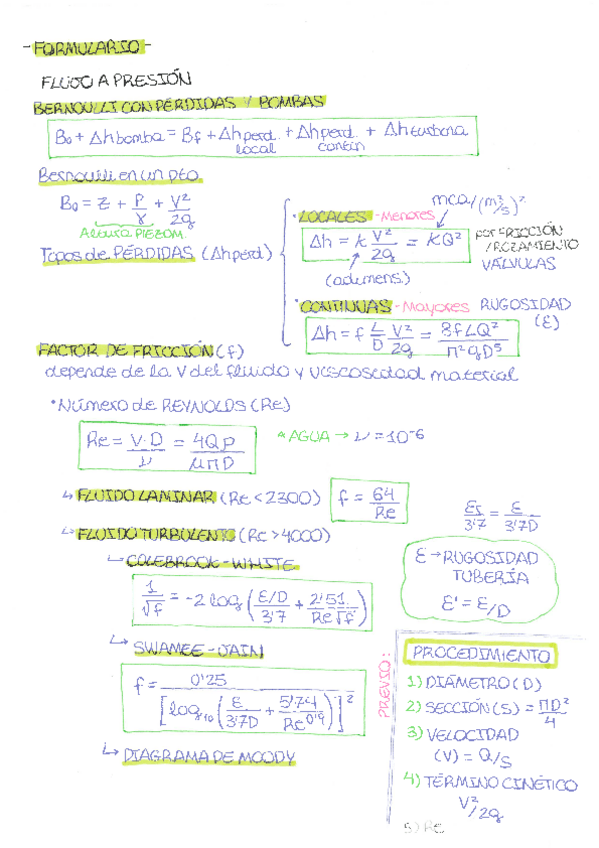 - FORMULARIO -
FLUJO A PRESIÓN
BERNOULLI CON PÉRDIDAS Y BOMBAS
B₀ + Δhbomba = Bf + Δhperd. local + Δhperd. contin + Δhturbina
Bernouilli en un pto
B₀ = z + P/γ + V²/2g
Altura PIEZOM
Tipos de PÉRDIDAS (Δhperd)
· LOCALES - Menores
mca/(m³/s)²
Δh = K V²/2g = KQ²
(adimens.)
por FRICCIÓN
/ROZAMIENTO
VÁLVULAS
· CONTINUAS - Mayores RUGOSIDAD
(ε)
Δh = f L/D V²/2g = 8fLQ²/π²gD⁵
FACTOR DE FRICCIÓN (f)
depende de la V del fluido y viscosidad material
· Número de REYNOLDS (Re)
Re = V·D/ν = 4Qρ/μπD
* AGUA → ν = 10⁻⁶
↳ FLUIDO LAMINAR (Re < 2300) f = 64/Re
↳ FLUIDO TURBULENTO (Re > 4000)
↳ COLEBROOK - WHITE
1/√f = -2 log (ε/D/3'7 + 2'51/Re√f)
3'7 = ε/3'7D
ε → RUGOSIDAD
TUBERÍA
ε' = ε/D
↳ SWAMEE - JAIN
f = 0'25/[log₁₀ (ε/3'7D + 5'74/Re^0'9)]²
↳ DIAGRAMA DE MOODY
PREVIO:
PROCEDIMIENTO
1) DIÁMETRO (D)
2) SECCIÓN (S) = πD²/4
3) VELOCIDAD
(V) = Q/S
4) TÉRMINO CINÉTICO
V²/2g
5) Re